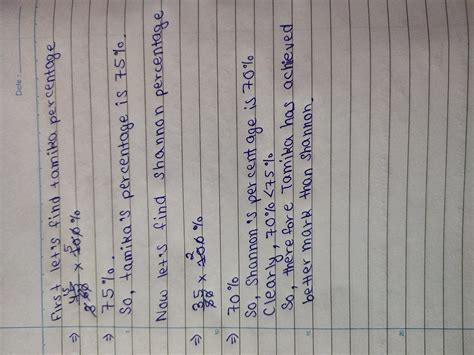 Date:
First let's find tamika percentage
15 5
⇒ × 100%
⇒ 75%.
So, tamika's percentage is 75%.
Now let's find shannon percentage
2
⇒ 35/50 × 100%
⇒ 70%
So, Shannon's percentage is 70%
Clearly, 70% < 75%
So, therefore Tamika has achieved
better mark than Shannon.